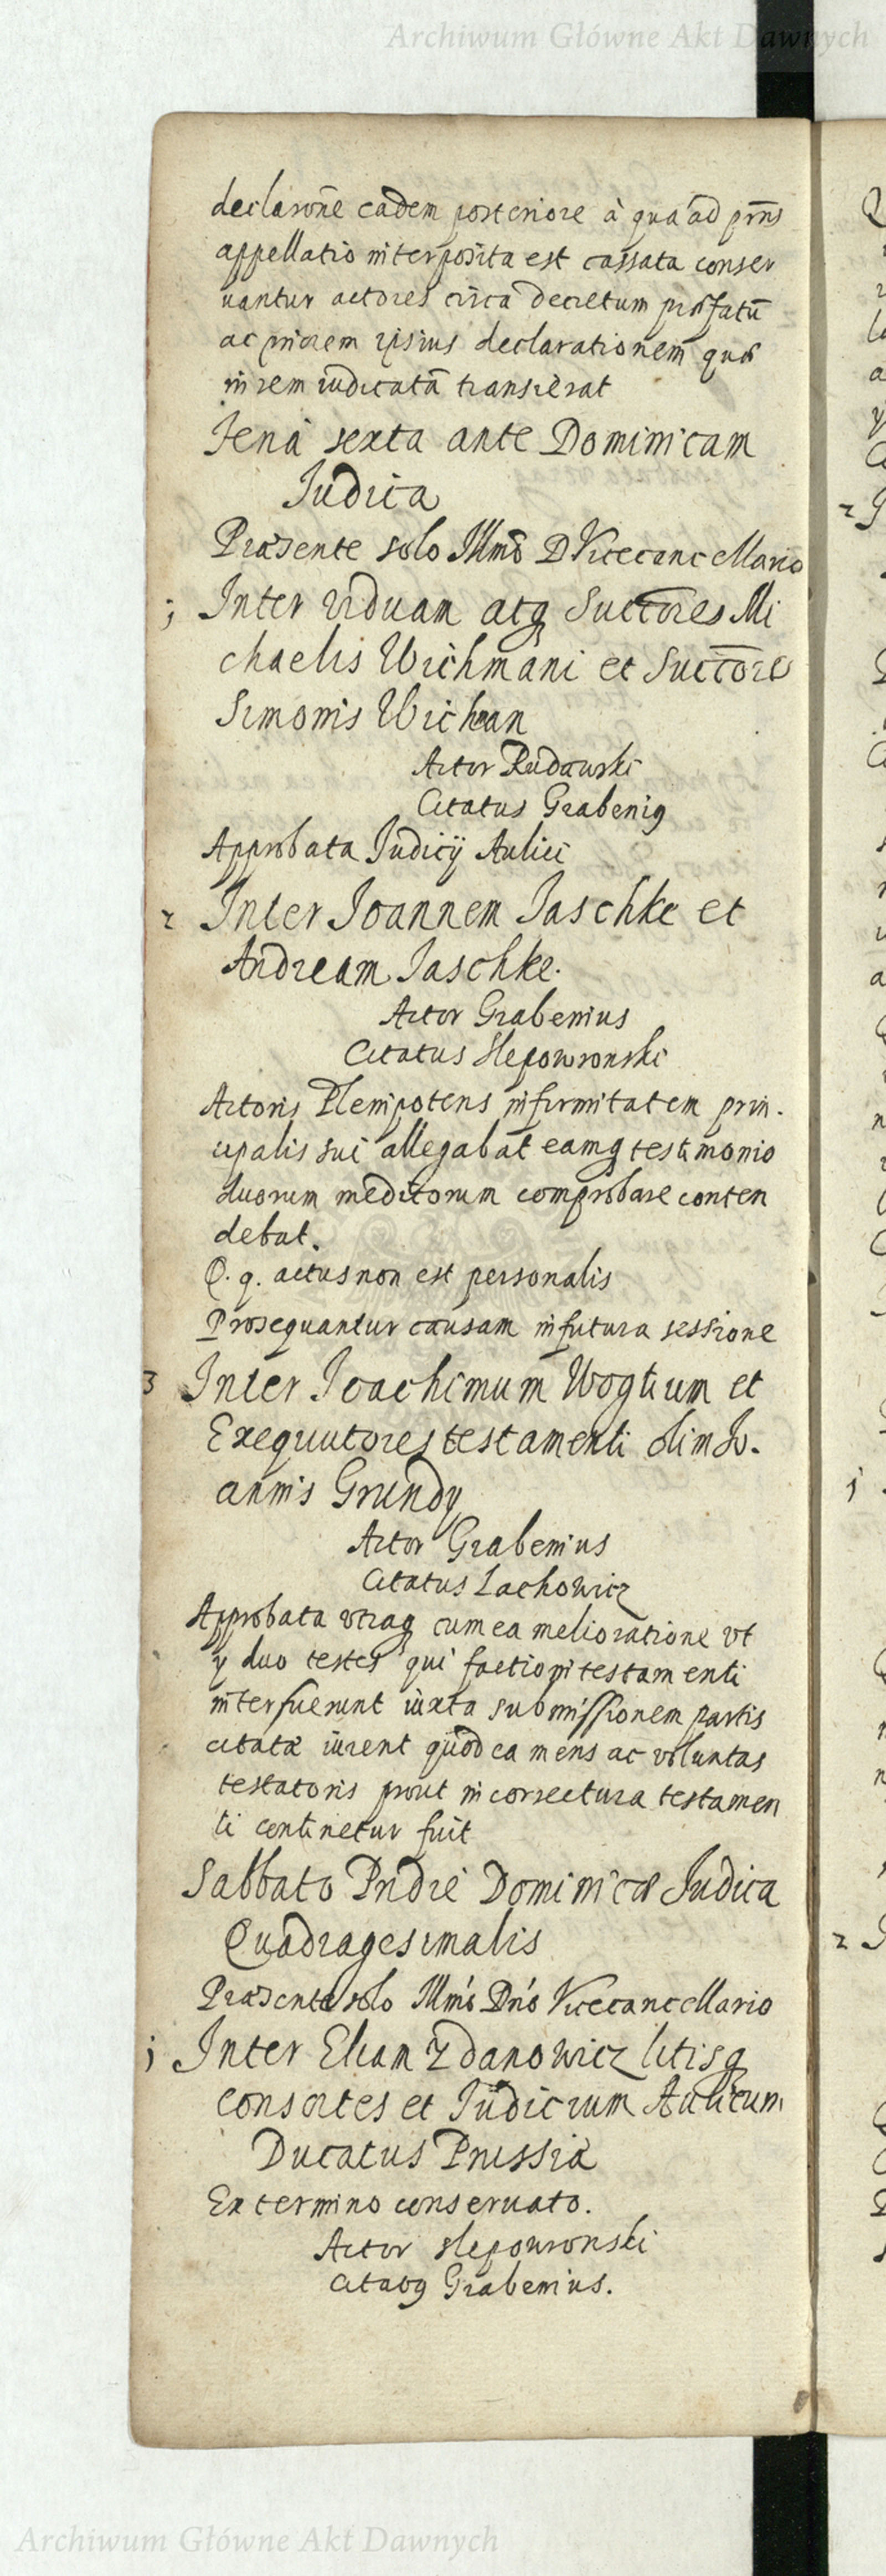 Archiwum Główne Akt Dawnych
declarōne eadem posteriore à qua ad prñs
appellatio interposita est cassata conser
uantur actores circa decretum præfatū
ac priorem ipsius declarationem quæ
in rem iudicatā transierat
Feria sexta ante Dominicam
Judica
Præsente solo Illmō D Vicecancellario
1 Inter viduam atq Succōres Mi
chaelis Wichmani et Succōres
Simonis Wichman
Actor Rudawski
Citatus Grabenig
Approbata Judicij Aulici
2 Inter Joannem Jaschke et
Andream Jaschke.
Actor Grabenius
Citatus Slepowronski
Actoris Plenipotens infirmitatem prin.
cipalis sui allegabat eamq testimonio
duorum medicorum comprobare conten
debat.
Q. q. actus non est personalis
Prosequantur causam in futura sessione
3 Inter Joachimum Wogtium et
Exequutores testamenti olim Jo.
annis Grundy
Actor Grabenius
Citatus Lachowicz
Approbata vtraq cum ea melioratione vt
y duo testes qui factioni testamenti
interfuerunt iuxta submissionem partis
citatæ iurent quod ea mens ac voluntas
testatoris prout in correctura testamen
ti continetur fuit
Sabbato Pridie Dominicæ Judica
Quadragesimalis
Præsente solo Illmō Dnō Vicecancellario
1 Inter Eliam Zdanowicz litisq
consortes et Judicium Aulicum
Ducatus Prussiæ
Ex termino conseruato.
Actor Slepowronski
Citatq Grabenius.
Archiwum Główne Akt Dawnych